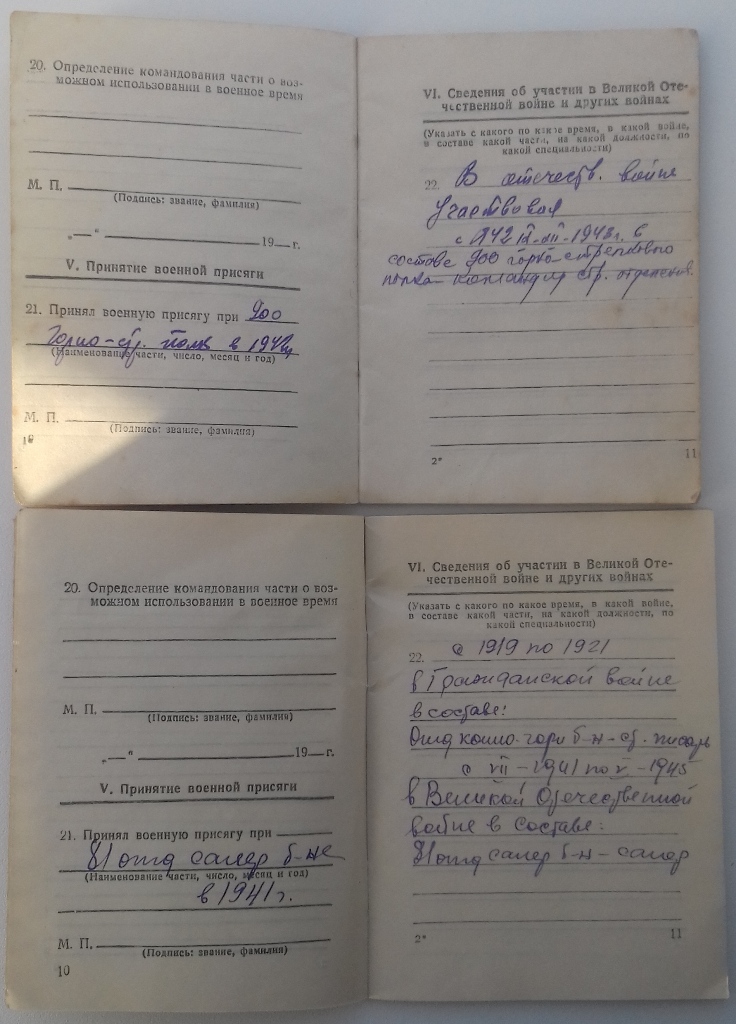 20. Определение командования части о воз-
можном использовании в военное время
М. П.
(Подпись: звание, фамилия)
„—“ 19—г.
V. Принятие военной присяги
21. Принял военную присягу при 900
Горно-стр. полк в 1942г
(Наименование части, число, месяц и год)
М. П.
(Подпись: звание, фамилия)
10
VI. Сведения об участии в Великой Оте-
чественной войне и других войнах
(Указать с какого по какое время, в какой войне,
в составе какой части, на какой должности, по
какой специальности)
22. В отечеств. войне
Участвовал
с 1942 IX-XII-1943г. в
составе 900 горно-стрелкового
полка командир стр. отделения.
2*
11
20. Определение командования части о воз-
можном использовании в военное время
М. П.
(Подпись: звание, фамилия)
„—“ 19—г.
V. Принятие военной присяги
21. Принял военную присягу при
81 отд сапер б-не
(Наименование части, число, месяц и год)
в 1941г.
М. П.
(Подпись: звание, фамилия)
10
VI. Сведения об участии в Великой Оте-
чественной войне и других войнах
(Указать с какого по какое время, в какой войне,
в составе какой части, на какой должности, по
какой специальности)
22. с 1919 по 1921
в Гражданской войне
в составе:
Отд б-н-ст. писарь
с VII-1941 по V-1945
в Великой Отечественной
войне в составе:
81 отд сапер б-н-сапер
2*
11